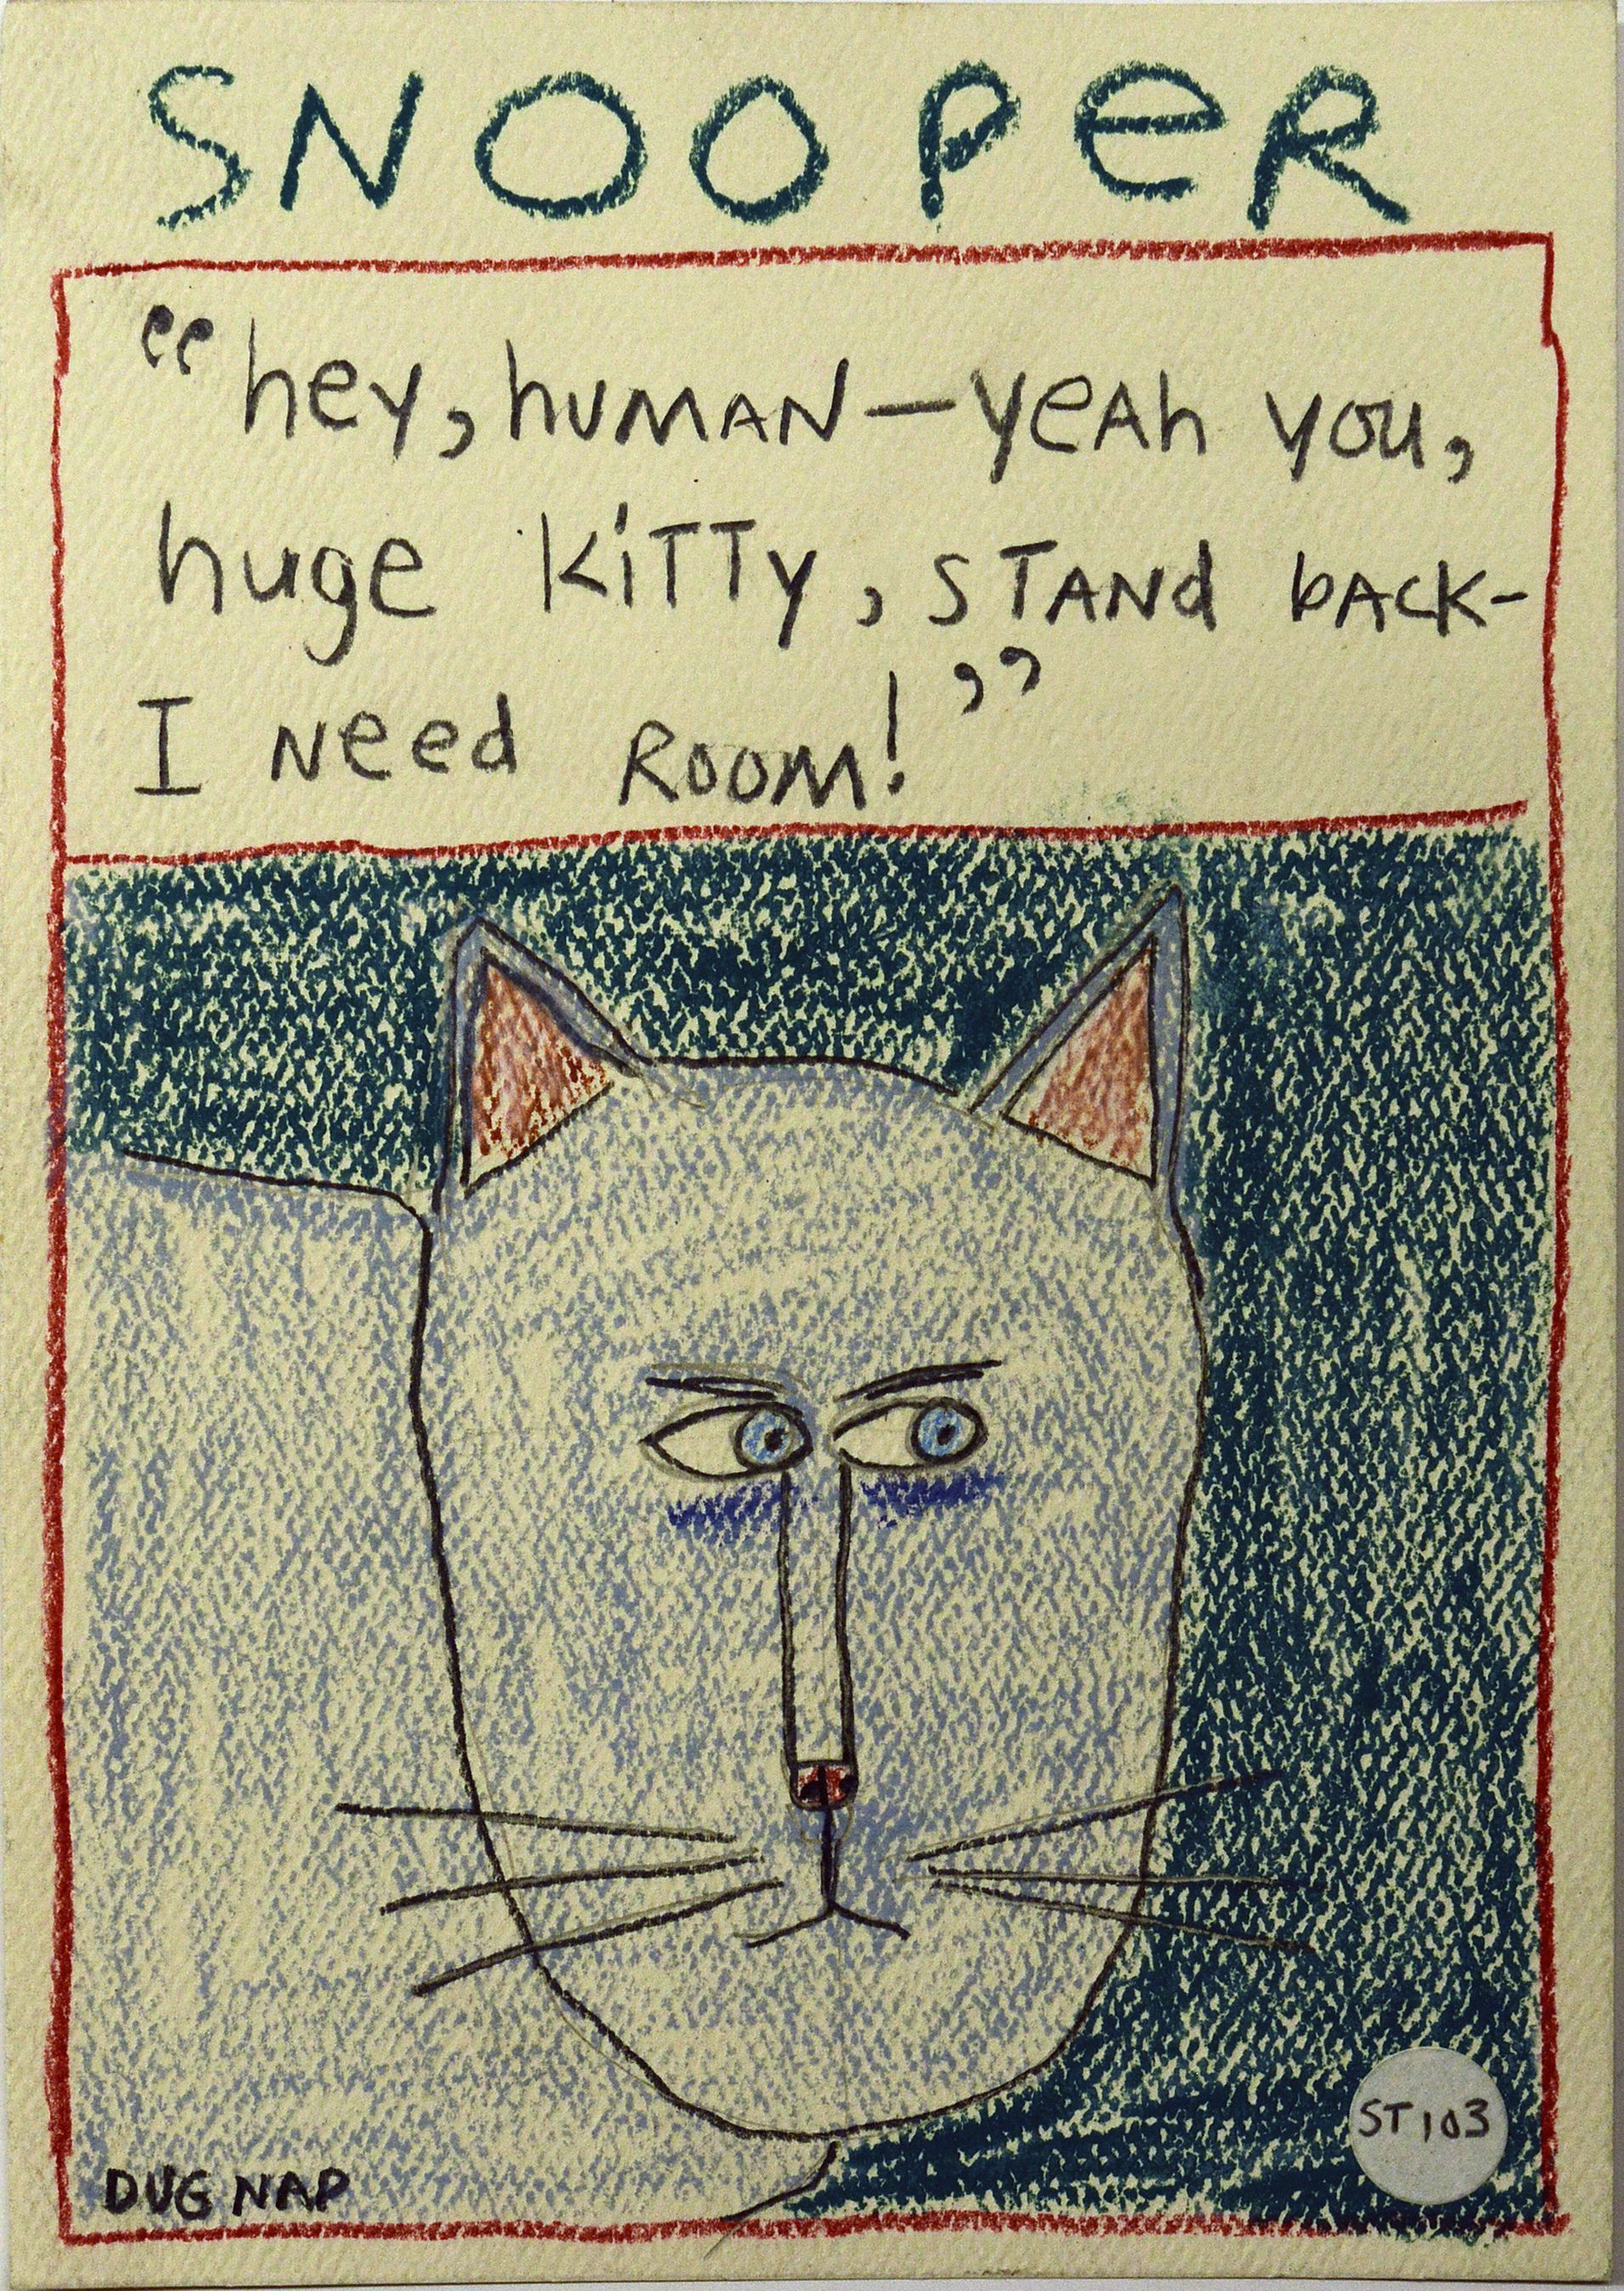 SNOOPeR
“hey, huMAN—yeAh you,
huge KiTTy, STANd bACK-
I Need RooM!”
DUG NAP
ST103